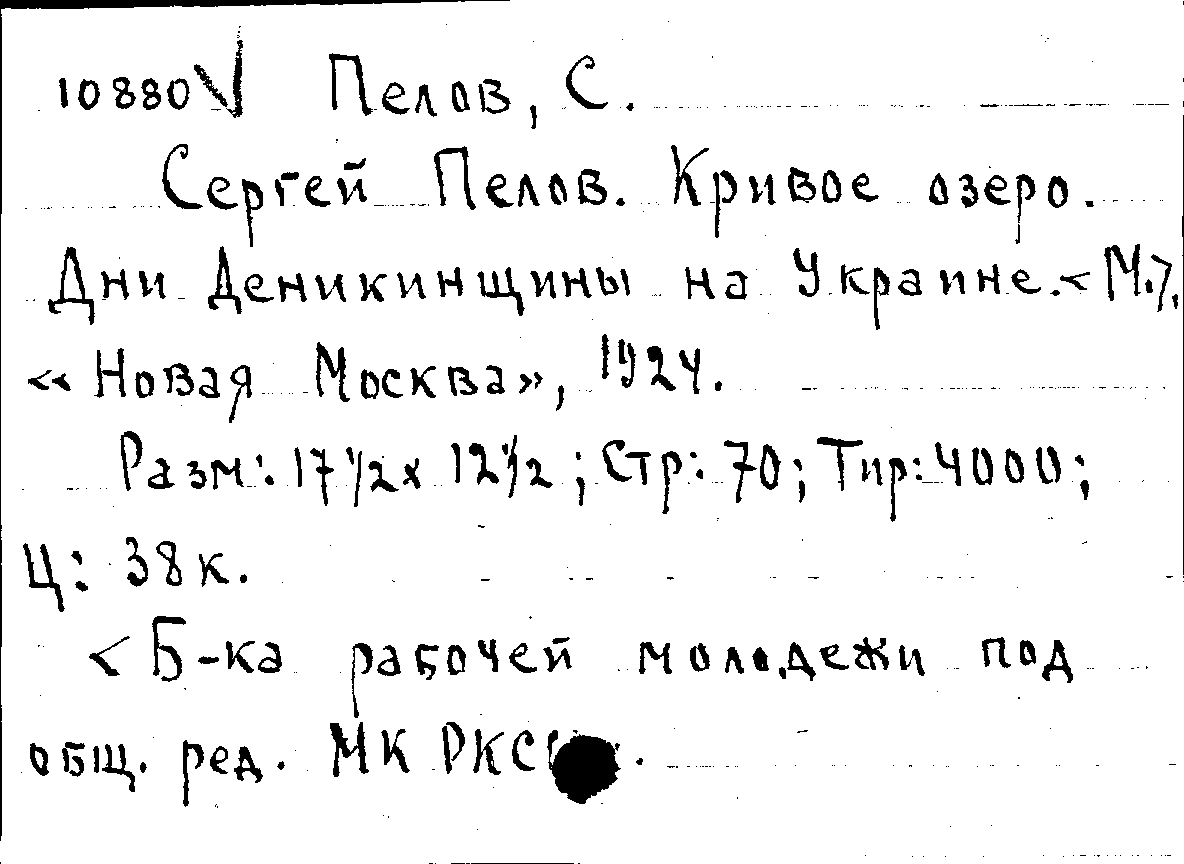 10880 V Пелов, С.
Сергей Пелов. Кривое озеро.
Дни Деникинщины на Украине. <М.>,
«Новая Москва», 1924.
Разм: 17 1/2 x 12 1/2; Стр: 70; Тир: 4000;
Ц: 38 к.
<Б-ка рабочей молодежи под
общ. ред. МК